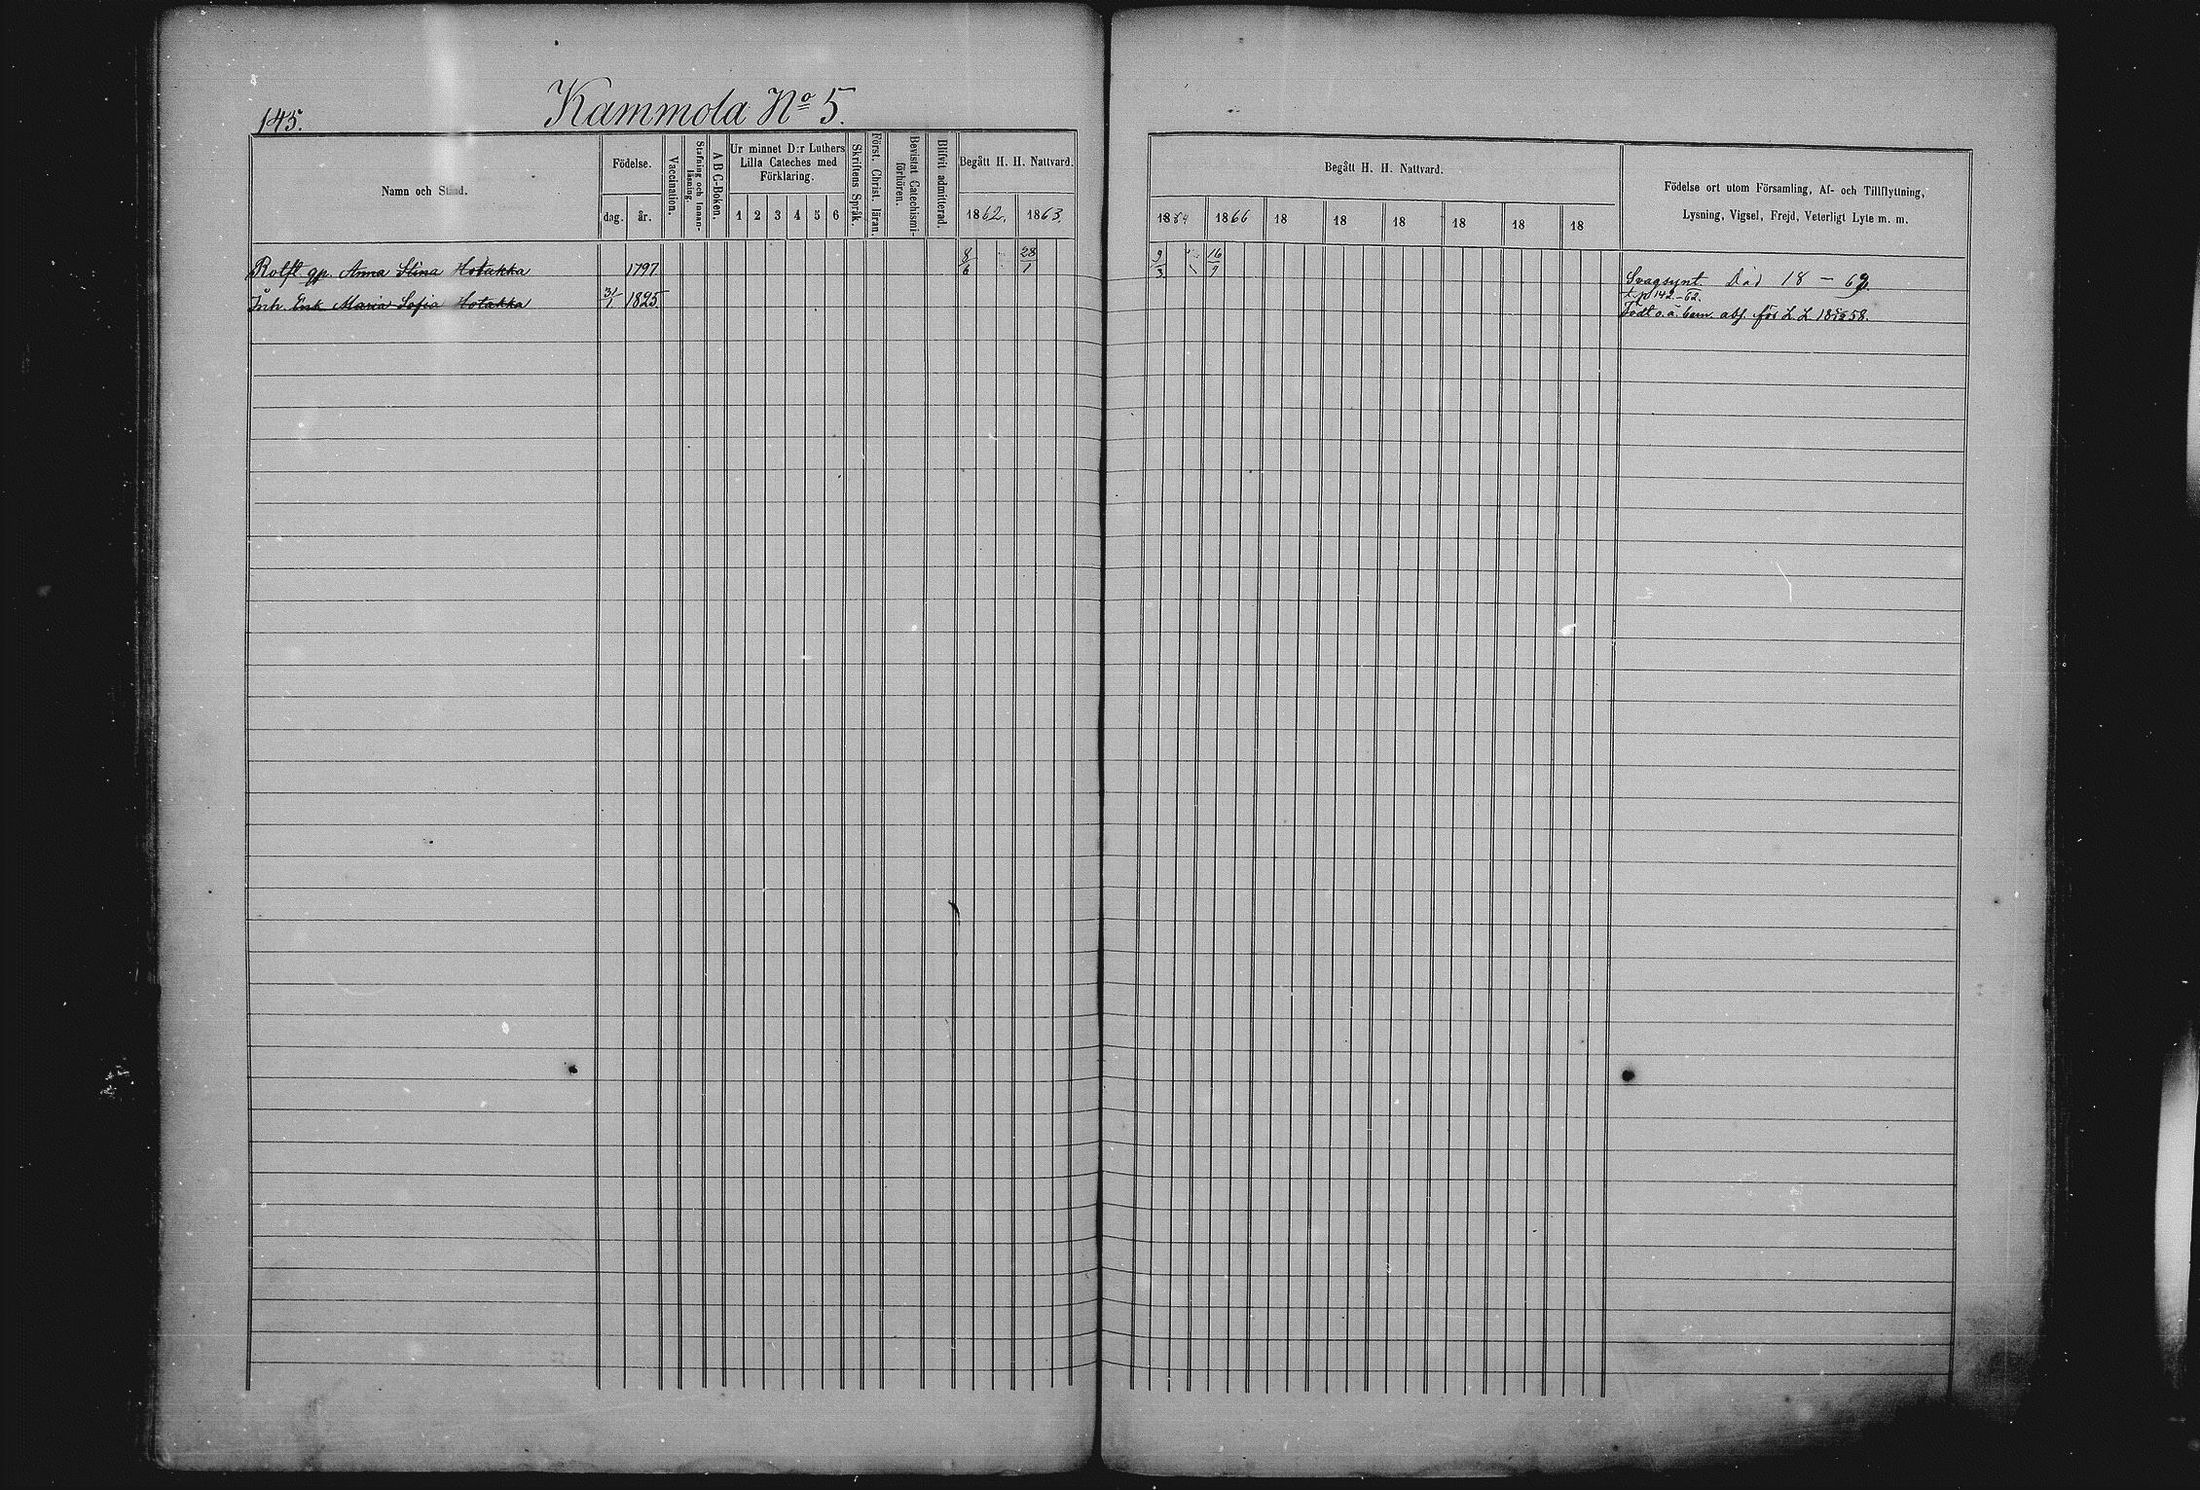 145.
Kammola No 5.
Namn och Stånd.
Födelse.
dag.
år.
Vaccination.
Stafning och Innan-läsning.
A B C-Boken.
Ur minnet D:r Luthers
Lilla Cateches med
Förklaring.
1 2 3 4 5 6
Skriftens Språk.
Först. Christ. läran.
Bevistat Catechismi-förhören.
Blifvit admitterad.
Begått H. H. Nattvard.
1862. 1863.
Begått H. H. Nattvard.
1864 1866 18 18 18 18 18 18
Födelse ort utom Församling, Af- och Tillflyttning,
Lysning, Vigsel, Frejd, Veterligt Lyte m. m.
Anna Stina Hotakka 1797 8/6 28/1 9/3 16/9 Svagsynt. Död 18 – 69.
Inh. Enk. Maria Sofia Hotakka 31/1 1825. t. p 142 – 62.
Födt o. ä. barn abs. för L. L.